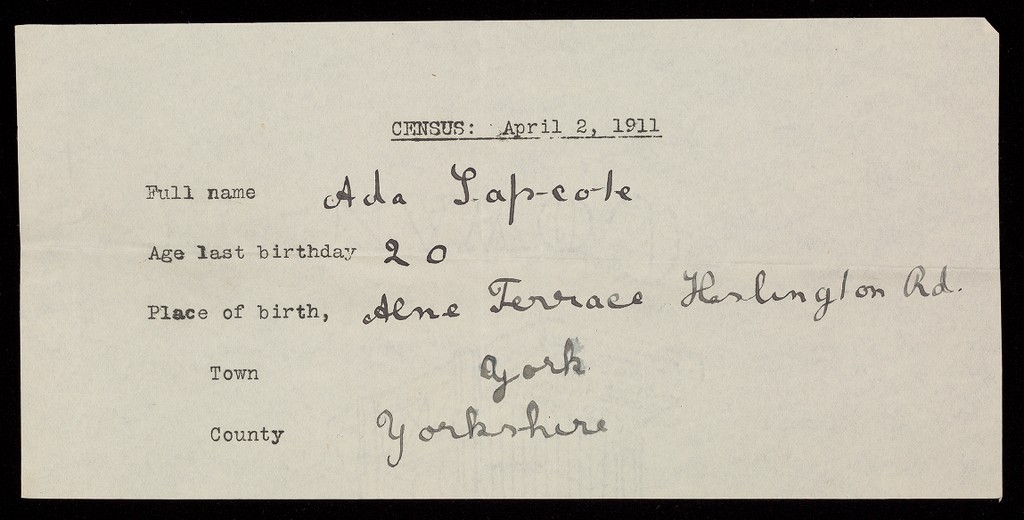 CENSUS: April 2, 1911
Full name Ada Sapcote
Age last birthday 20
Place of birth, Alne Terrace Heslington Rd.
Town York
County Yorkshire